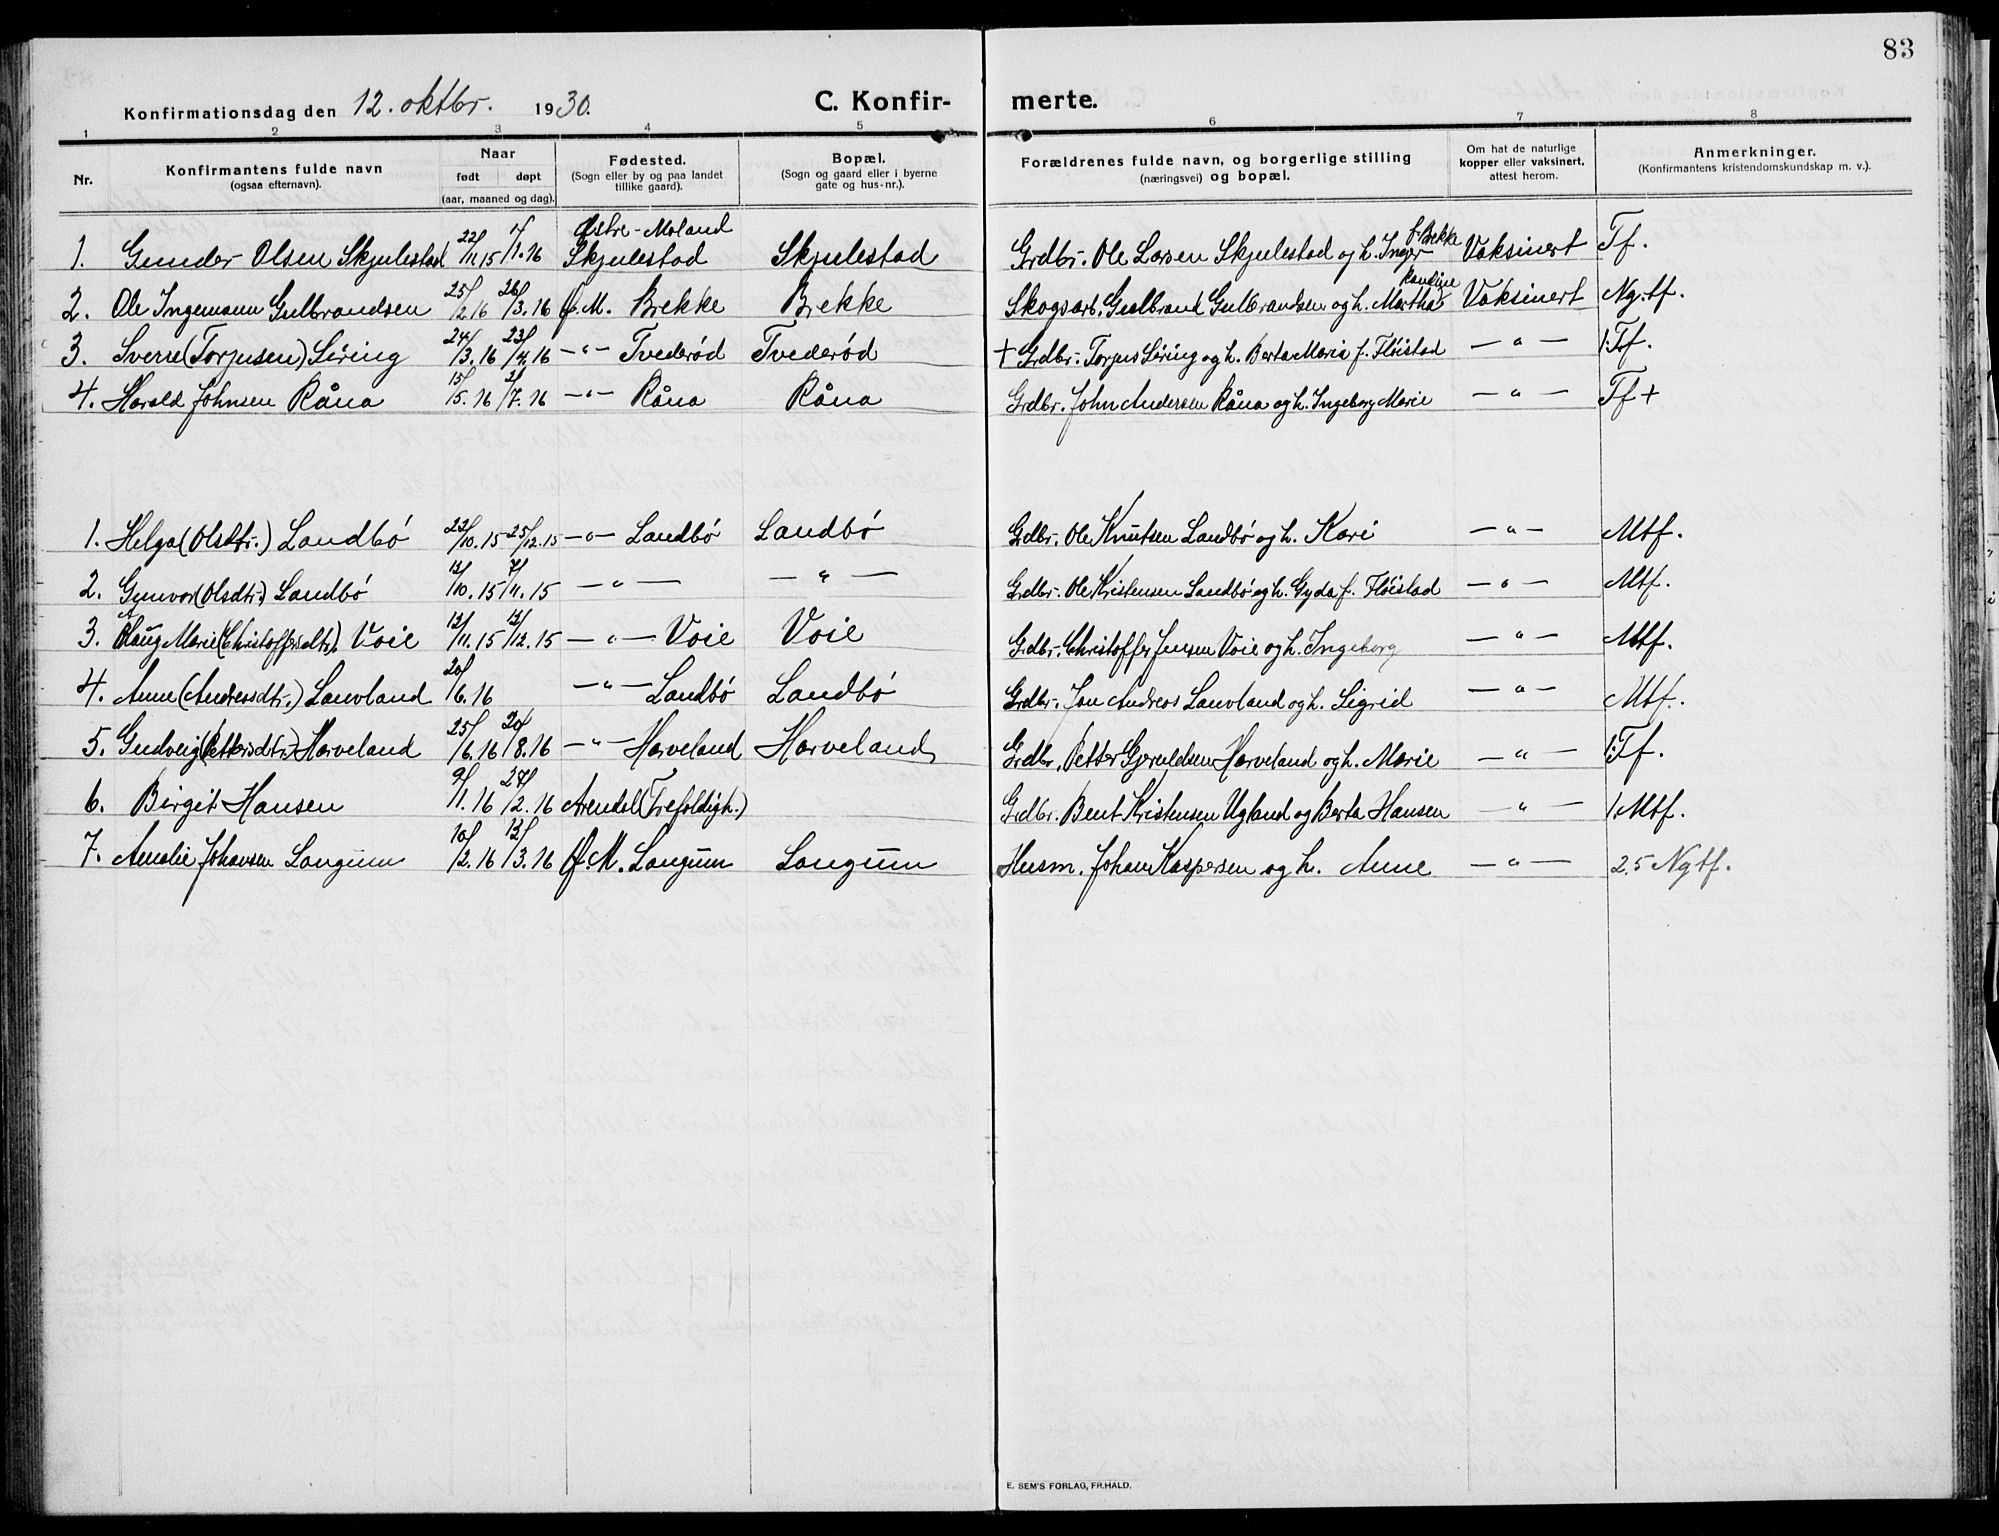 83
Konfirmationsdag den 12. oktbr. 1930. C. Konfir- merte.
1 2 3 4 5 6 7 8
Nr. Konfirmantens fulde navn (ogsaa efternavn). Naar født døpt (aar, maaned og dag). Fødested. (Sogn eller by og paa landet tillike gaard). Bopæl. (Sogn og gaard eller i byerne gate og hus-nr.). Forældrenes fulde navn, og borgerlige stilling (næringsvei) og bopæl. Om hat de naturlige kopper eller vaksinert, attest herom. Anmerkninger. (Konfirmantens kristendomskundskap m. v.).
1. Gunder Olsen Skjulestad 22/11.15 7/1.16 Østre-Moland Skjulestad Skjulestad Grdbr. Ole Larsen Skjulestad og h. Inger f. Brekke Vaksinert Tf.
2. Ole Ingemann Gulbrandsen 25/2.16 26/3.16 Ø.M. Brekke Brekke Skogsarb. Gulbrand Gulbrandsen og h. Martha Randine Vaksinert Ng.tf.
3. Sverre (Torjusen) Søring 24/3.16 23/4.16 —"— Tvederød Tvederød + Grdbr. Torjus Søring og h. Berta Marie f. Fløistad —"— 1.Tf.
4. Harald Johnsen Råna 15/5.16 2/7.16 —"— Råna Råna Grdbr. John Andersen Råna og h. Ingeborg Marie —"— Tf +
1. Helga (Olsdtr.) Landbø 22/10.15 25/12.15 —"— Landbø Landbø Grdbr. Ole Knutsen Landbø og h. Kari —"— Mtf.
2. Gunvor (Olsdtr.) Landbø 12/10.15 7/11.15 —"— —"— Grdbr. Ole Kristensen Landbø og h. Gyda f. Fløistad —"— Mtf.
3. Olaug Marie (Christoffersdtr.) Voie 12/11.15 12/12.15 —"— Voie Voie Grdbr. Christoffer Jensen Voie og h. Ingeborg —"— Mtf.
4. Anne (Andreasdtr.) Lauvland 20/6.16 —"— Landbø Landbø Grdbr. Jon Andreas Lauvland og h. Sigrid —"— Mtf.
5. Gudveig (Pettersdtr.) Harveland 25/6.16 20/8.16 —"— Harveland Harveland Grdbr. Petter Gjeruldsen Harveland og h. Marie —"— 1.Tf.
6. Birgit Hansen 9/1.16 27/2.16 Arendal (Trefoldigh.) Grdbr. Bent Kristensen Ugland og Berta Hansen —"— 1.Mtf.
7. Amalie Johansen Langum 10/2.16 12/3.16 Ø.M. Langum Langum Husm. Johan Kaspersen og h. Anne —"— 2.5 Ngtf.
E. SEM'S FORLAG, FR.HALD.